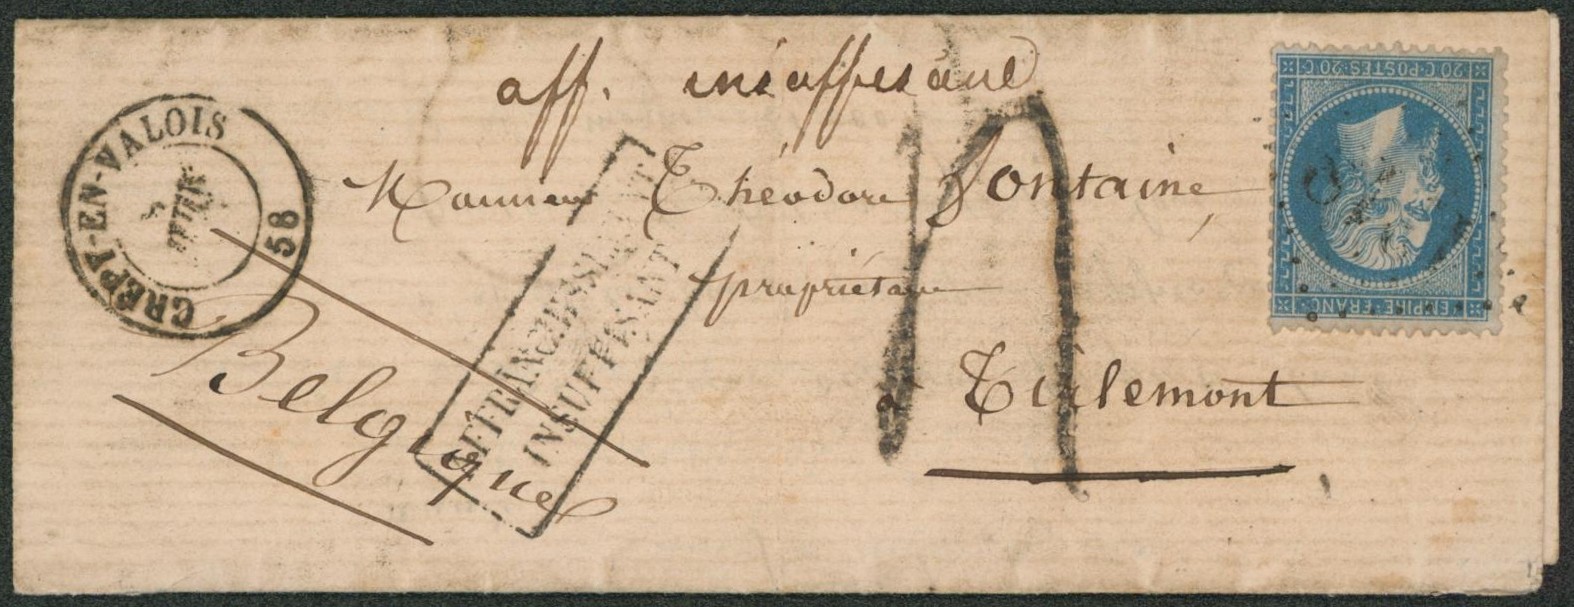 aff. insuffisante
CREPY-EN-VALOIS
5
FEVR
58
Monsieur Théodore Fontaine,
propriétaire
à Tirlemont
Belgique
AFFRANCHISSEMENT
INSUFFISANT
20 C·POSTES·20 C
EMPIRE·FRANC